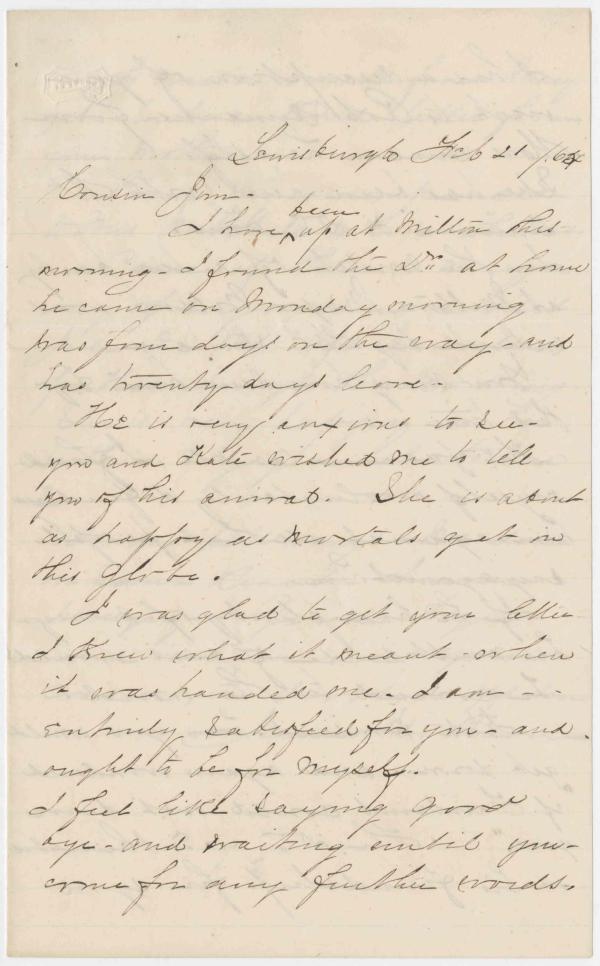 Lewisburgh Feb 21 /64
Cousin Jim -
I have been up at Milton this
morning - I found the Dr. at home
he came on Monday morning
was four days on the way - and
has twenty days leave -
He is very anxious to see -
you and Kate wished me to tell
you of his arrival. She is about
as happy as mortals get in
this globe.
I was glad to get your letter
I knew what it meant - when
it was handed me. I am - -
entirely satisfied for you - and
ought to be for myself.
I feel like saying good
bye - and waiting until you -
come for any further words.